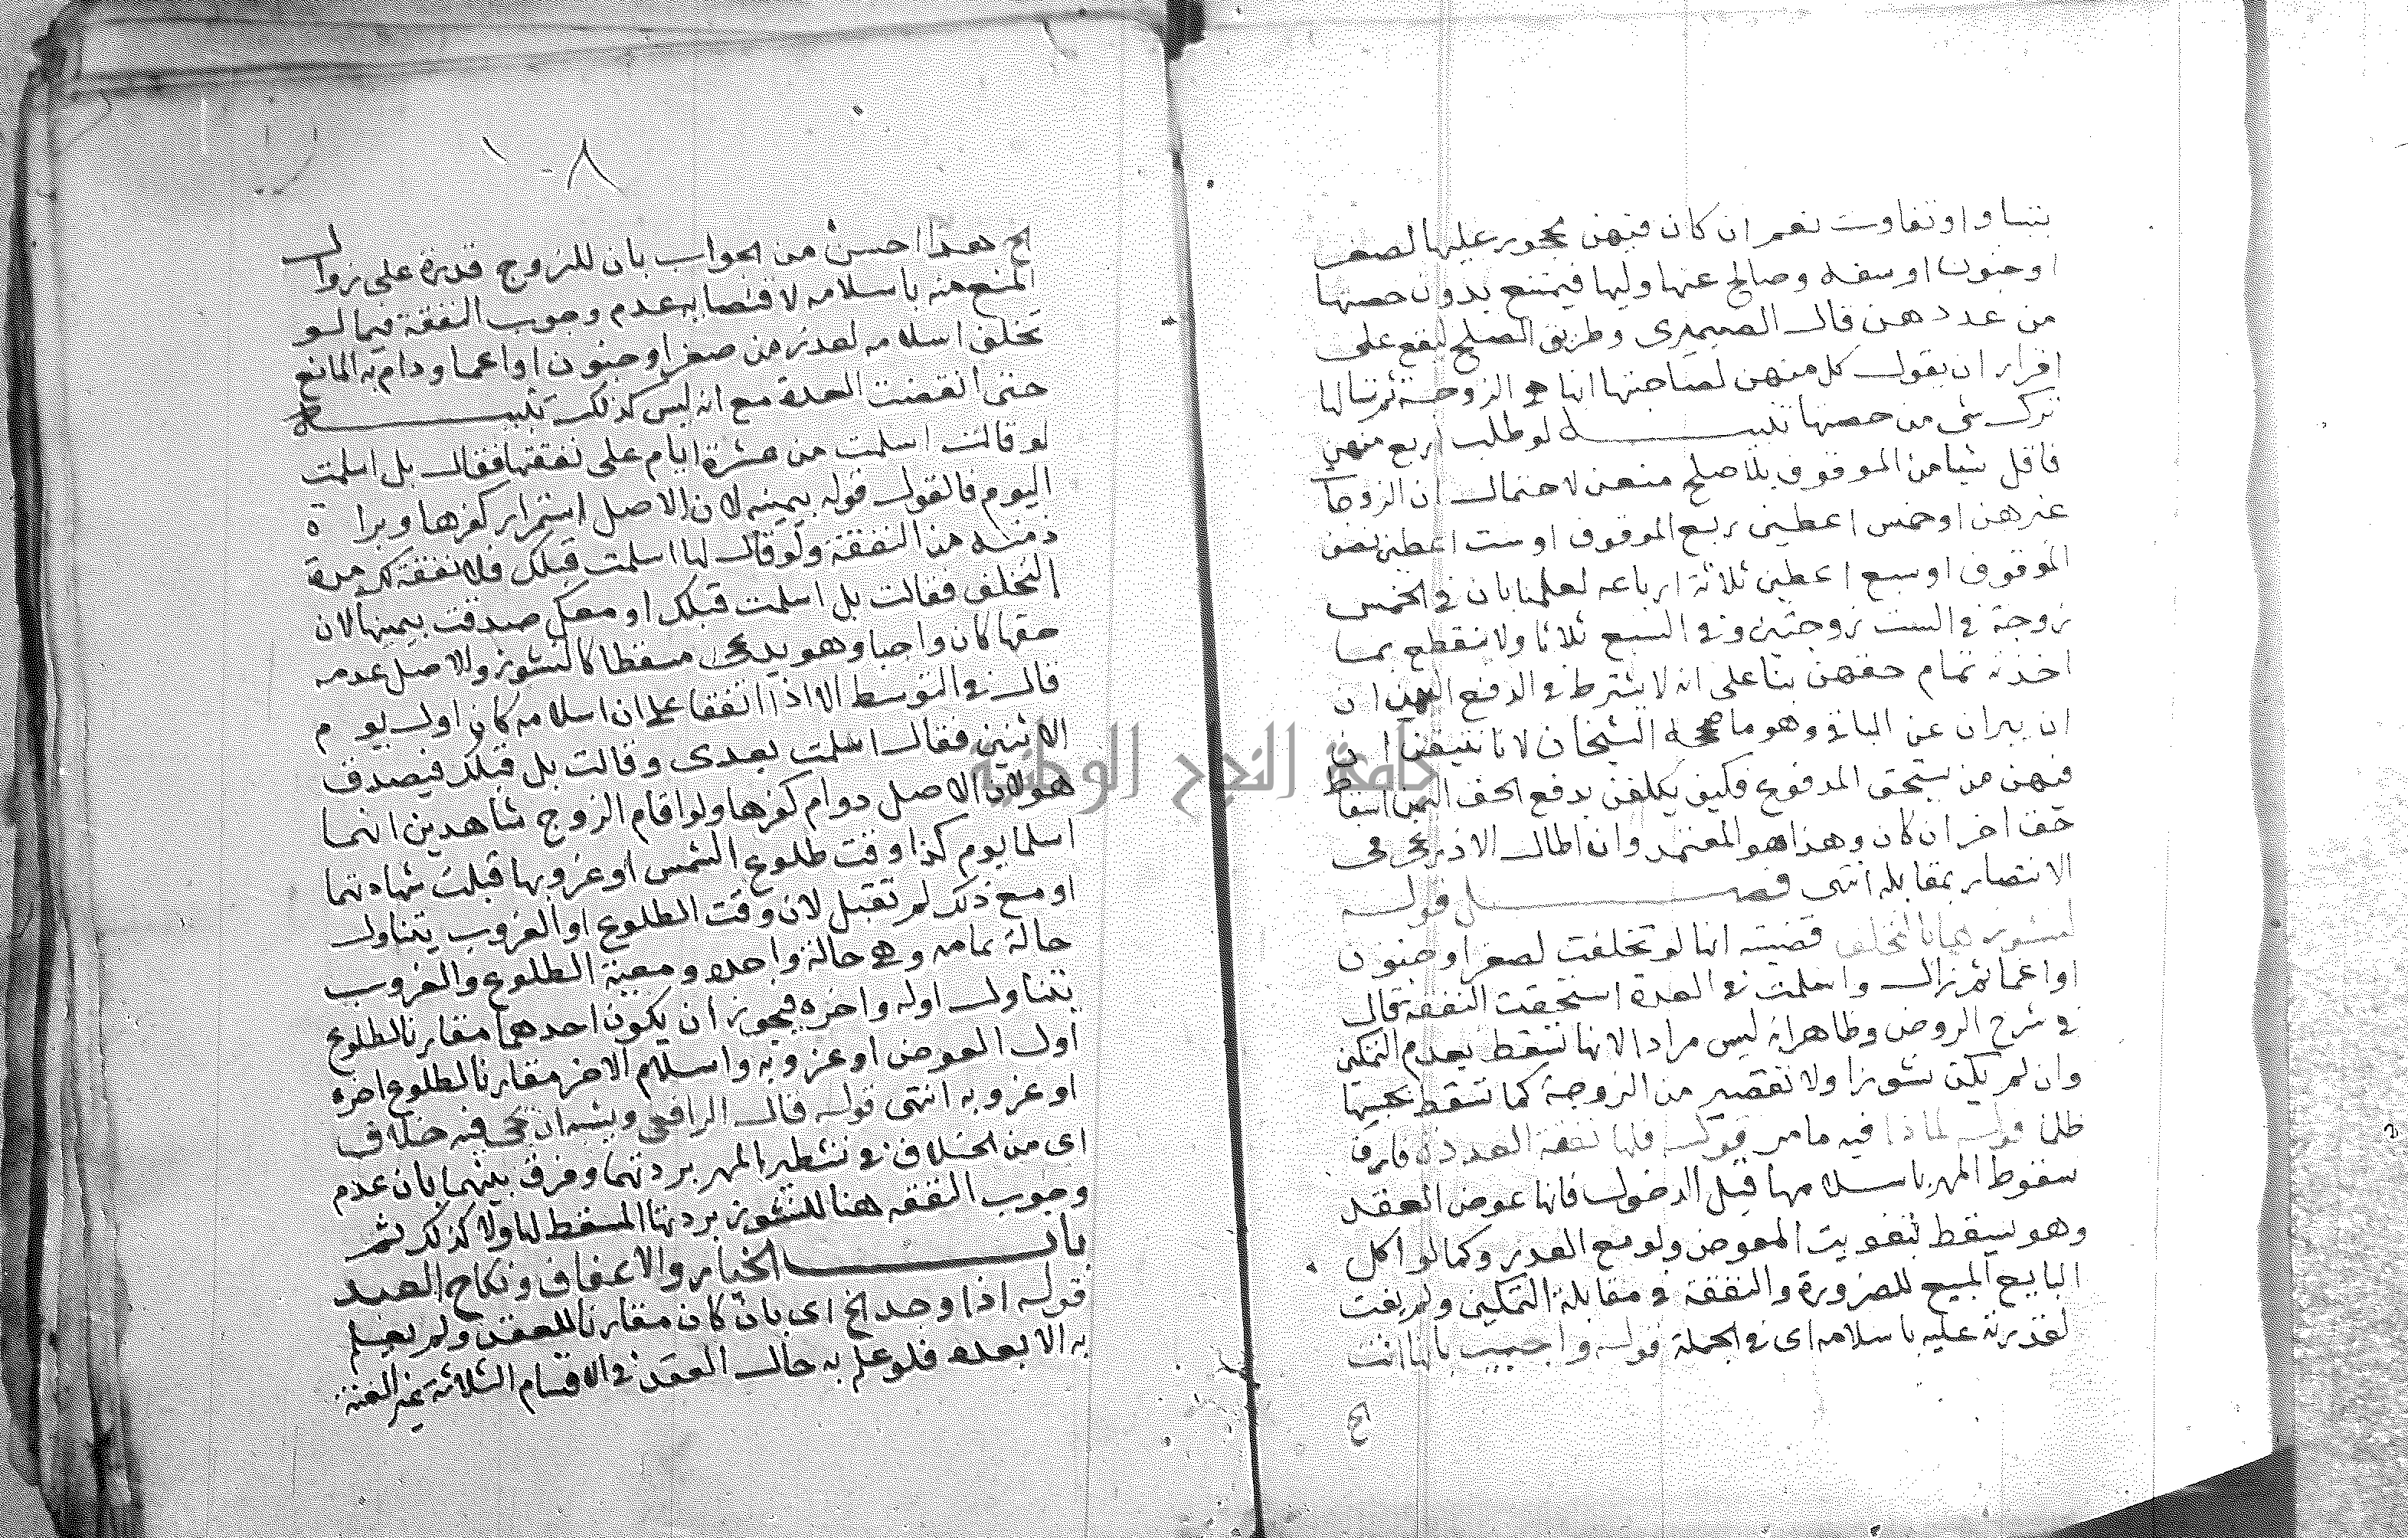 بتساو او تفاوت نعم ان كان فيهن محجور عليها لصغر
او جنون او سفه وصالح عنها وليها فيمتنع بدون حصتها
من عددهن قال الصيمري وطريق الصلح ليقع على
اقرار ان يقول كل منهن لصاحبتها انها هي الزوجة ثم تسالها
ترك شي من حصتها تنبيه لو طلب اربع منهن
فاقل شيا من الموقوف بلا صلح منعن لاحتمال ان الزوجات
غيرهن او خمس اعطين ربع الموقوف او ست اعطين نصف
الموقوف او سبع اعطين ثلاثة ارباعه لعلمنا بان في الخمس
زوجة في الست زوجتين وفي السبع ثلاثا ولا ينقطع بما
اخذنه تمام حقهن بنا على انه لا يشترط في الدفع اليهن ان
ان يبران عن الباقي وهو ما صححه الشيخان لانا نتيقن ان
فيهن من يستحق المدفوع فكيف يكلفن بدفع الحق اليهن اسقاط
حق اخر ان كان وهذا هو المعتمد وان اطال الاذرعي في
الانتصار بمقابله انتهى فصل قوله
لنشوزها بالتخلف قضيته انها لو تخلفت لصغر او جنون
او اغما ثم زال واسلمت في العدة استحقت النفقة قال
في شرح الروض وظاهر انه ليس مرادا لانها تسقط بعدم التمكين
وان لم يكن نشوزا ولا تقصير من الزوجة كما تسقط بحبسها
ظلما قوله لما ذا فيه ما مر قوله فلها نفقة العدة فارق
سقوط المهر باسلامها قبل الدخول فانها عوض العقد
وهو يسقط بتفويت المعوض ولو مع العذر وكما لو اكل
البايع المبيع للضرورة والنفقة في مقابلة التمكين ولم يفت
لقدرته عليه باسلامه اي في الجملة قوله واجيب بانها انت
الخ
١٠٨
الخ هذا احسن من الجواب بان للزوج قدرة على زوال
المنع منه باسلامه لاقتضايه عدم وجوب النفقة فيما لو
تخلف اسلامه لعذر من صغر او جنون او اغما ودام به المانع
حتى انقضت العدة مع انه ليس كذلك تنبيه
لو قالت اسلمت من عشرة ايام على نفقتها فقال بل اسلمت
اليوم فالقول قوله بيمينه لان الاصل استمرار كفرها وبراة
ذمته من النفقة ولو قال لها اسلمت قبلك فلا نفقة لك مدة
التخلف فقالت بل اسلمت قبلك او معك صدقت بيمينها لان
حقها كان واجبا وهو يدعي مسقطا كالنشوز والاصل عدمه
قال في التوسط الا اذا اتفقا على ان اسلامه كان اول يوم
الاثنين فقال اسلمت بعدي وقالت بل قبلك فيصدق
هو لان الاصل دوام كفرها ولو اقام الزوج شاهدين انهما
اسلما يوم كذا وقت طلوع الشمس او غروبها قبلت شهادتهما
او مع ذلك لم تقبل لان وقت الطلوع او الغروب يتناول
حالة تمامه وهي حالة واحدة ومعية الطلوع والغروب
يتناول اوله واخره فيجوز ان يكون احدهما مقارنا لطلوع
اول العوض او غروبه واسلام الاخر مقارنا لطلوع اخره
او غروبه انتهى قوله قال الرافعي ويشبه ان يجي فيه خلاف
اي من الخلاف في تشطير المهر بردتهما وفرق بينهما بان عدم
وجوب النفقه هنا للنشوز بردتها المسقط لها ولا كذلك ثم
باب الخيار والاعفاف ونكاح العبد
قوله اذا وجد الخ اي بان كان مقارنا للعقد ولم يعلم
به الا بعده فلو علم به حال العقد في الاقسام الثلاثة غير العنة